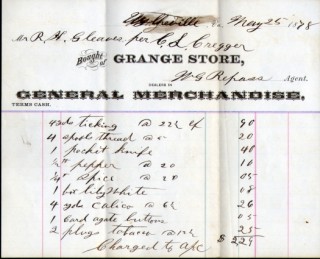 Wytheville Va May 25 1878
Mr R. H. Gleaves per C L Cregger
Bought of GRANGE STORE,
W G Repass Agent.
DEALERS IN
GENERAL MERCHANDISE,
TERMS CASH.
4 yds ticking @ 22½ 90
4 spools thread @ 5 20
1 pocket knife 40
½ " pepper @ 20 10
¼ " spice @ 20 05
1 box lily white 08
4 yds calico @ 6½ 26
1 card agate buttons 05
2 plugs tobacco @ 12½ 25
Charged to a/c $ 2.29